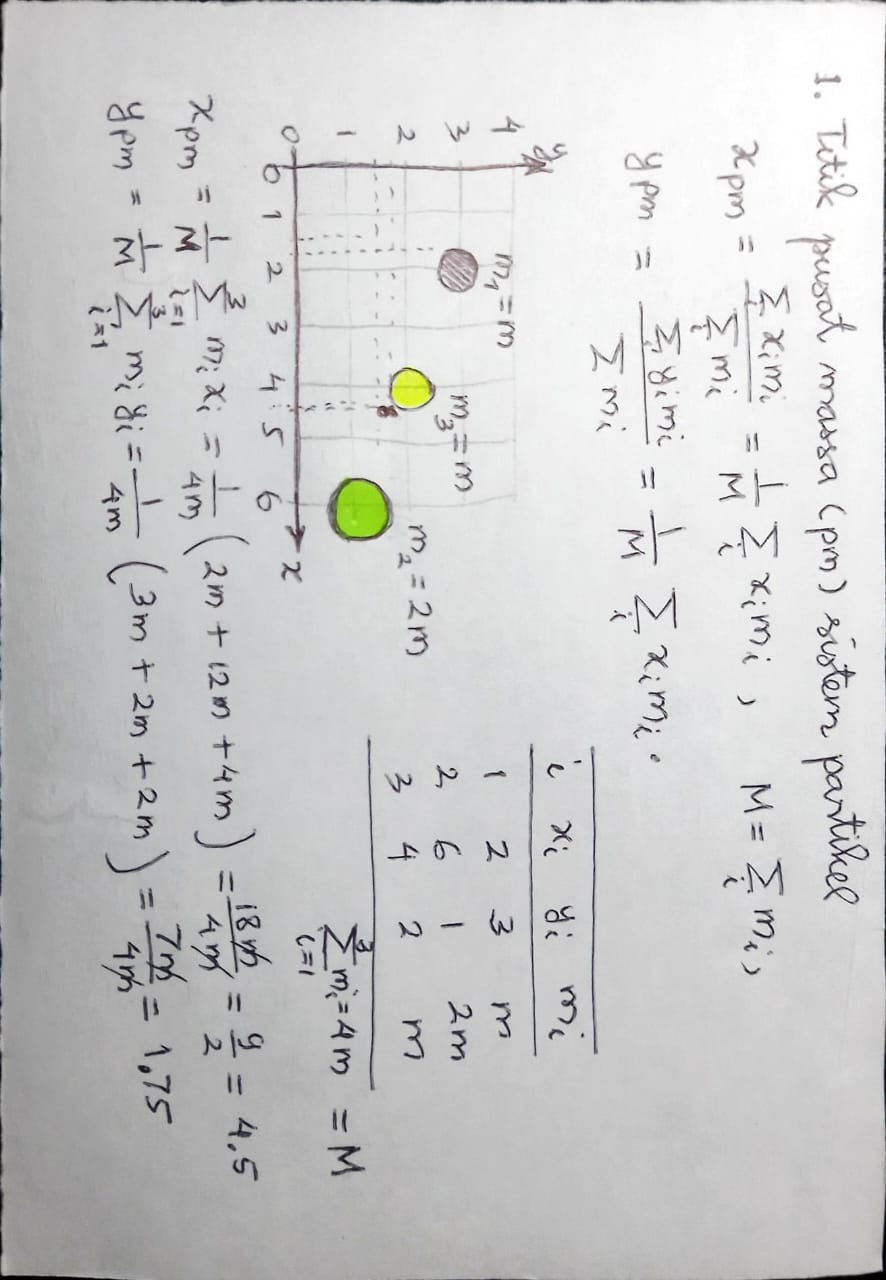 1. Titik pusat massa (pm) sistem partikel
x_pm = Σ_i x_i m_i / Σ_i m_i = 1/M Σ_i x_i m_i , M = Σ_i m_i ,
y_pm = Σ_i y_i m_i / Σ m_i = 1/M Σ_i x_i m_i .
i x_i y_i m_i
1 2 3 m
2 6 1 2m
3 4 2 m
Σ_{i=1}^{3} m_i = 4m = M
y
4
3
2
1
0
m_1 = m
m_3 = m
m_2 = 2m
0 1 2 3 4 5 6 x
x_pm = 1/M Σ_{i=1}^{3} m_i x_i = 1/4m ( 2m + 12m + 4m ) = 18m/4m = 9/2 = 4,5
y_pm = 1/M Σ_{i=1}^{3} m_i y_i = 1/4m ( 3m + 2m + 2m ) = 7m/4m = 1,75